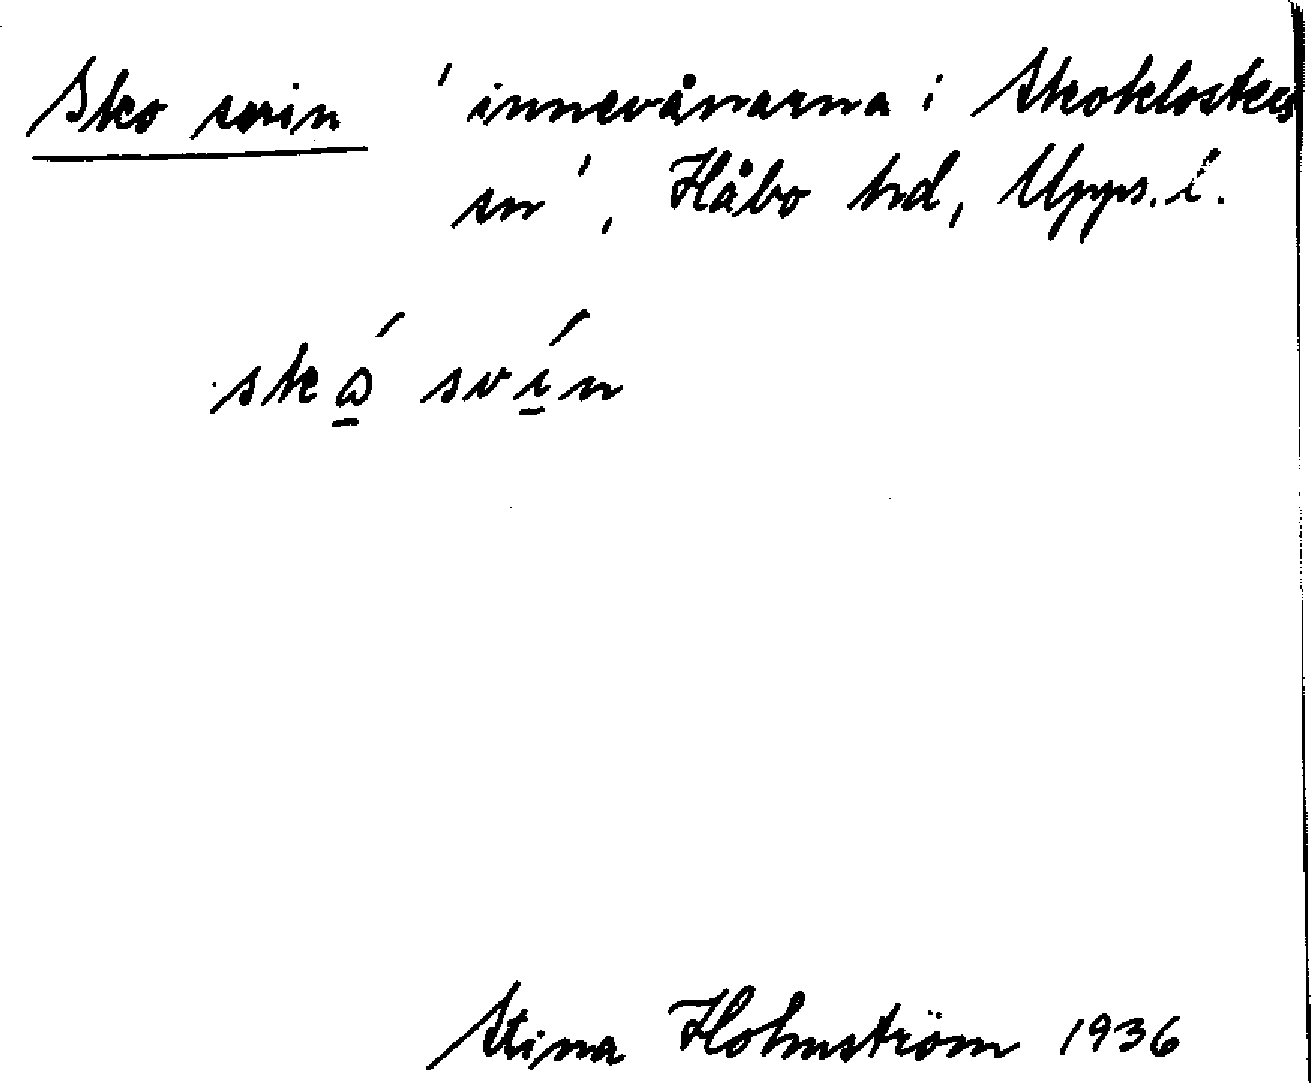 Sko svin 'innevånarna i Skoklosters
sn', Håbo hd, Upps. l.
skώ̱ sví̱n
Stina Holmström 1936